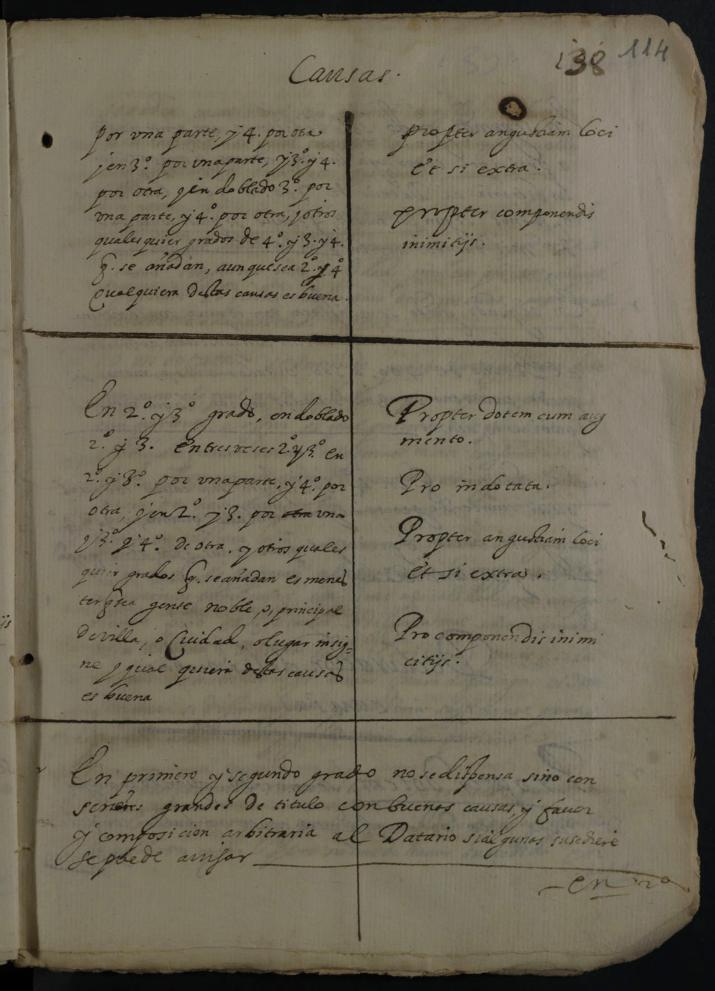 138 114
Causas.
por vna parte, y 4. por otra
y en 3º. por vna parte, y 3º. y 4.
por otra, y en doblado 3º. por
vna parte, y 4º. por otra, y otros
quales quier grados de 4º. y 3. y 4.
q. se añadan, aunque sea 2º. y 4º
Cualquiera destas causas es buena.
propter angustiam loci
Et si extra.
propter componendis
inimitijs.
En 2º. y 3º grado, en doblado
2º. y 3. en tres veses 2º. y 3º. en
2º. y 3º. por vna parte, y 4º. por
otra, y en 2º. y 3. por otra vna
y 3º. y 4º. de otra. y otros quales
quier grados q. se añadan es menes
ter q sea gense noble, o, principal
de villa, o Ciudad, o lugar insig-
ne y qual quiera destas causas
es buena
Propter dotem cum aug
mento.
Pro indotata.
Propter angustiam loci
Et si extra.
Pro componendis inimi
citijs.
En primero y segundo grado no se dispensa sino con
señores grandes de titulo con buenas causas, y favor
y composicion arbitraria al Datario si algunas susediere
se puede avisar